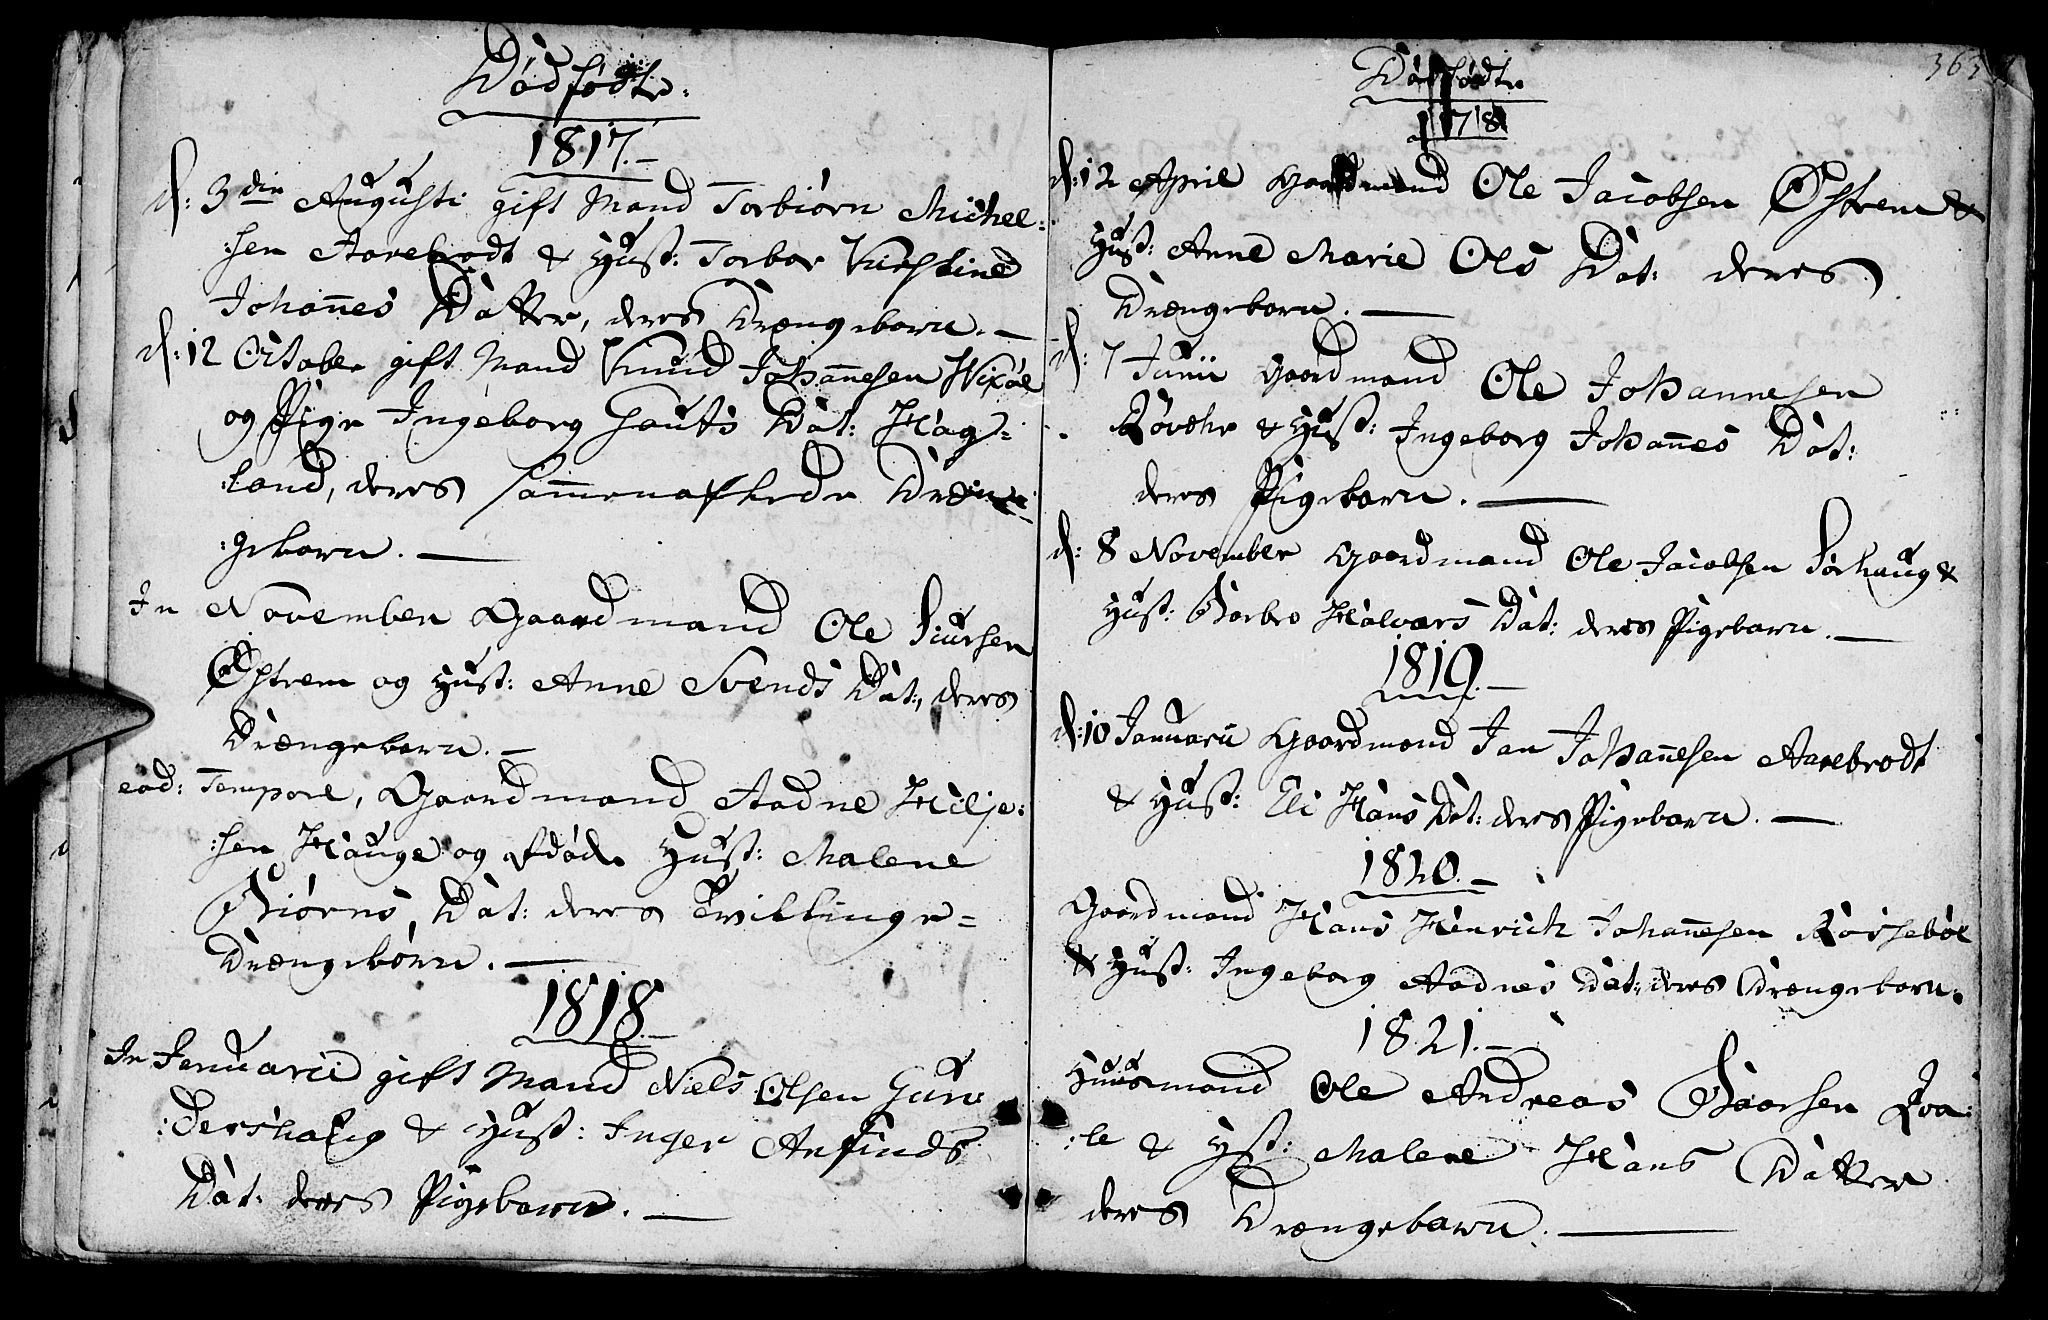 Dødfødte.
1817.-
d: 3die Augusti gift Mand Torbiørn Michel:
:sen Aarebrodt & Hust: Torbor Kirstine
Johan̄es Datter, deres Drængebarn. —
d: 12 October gift Mand Knud Johan̄esen Wixøe
og Pige Ingeborg Gauts Dat: Hag=
:land, deres sam̄enaflede Dræn=
:gebarn. —
In November Gaardmand Ole Siursen
Østrem og Hust: Anne Svends Dat:, deres
Drængebarn. —
eod: Tempore, Gaardmand Aadne Hilje:
:sen Hauge og Hust: Malene
Biørns, Dat: deres Tvillinge=
Drængebørn. —
1818.-
In Januarii gift Mand Niels Olsen Gun
:dershaug & Hust: Inger Anfinds
Dat: deres Pigebarn. —
363
Dødfødte
1718
d: 12 April Gaardmand Ole Jacobsen Østrem &
Hust: Anne Marie Ols Dat: deres
Drængebarn. —
d: 7 Junii Gaardmand Ole Johannesen
Røvæhr & Hust: Ingeborg Johan̄es Dat:
deres Pigebarn. —
d: 8 November Gaardmand Ole Jacobsen Sørhaug &
Hust: Barbro Halvars Dat: deres Pigebarn. —
1819.-
d: 10 Januarii Gaardmand Jan Johan̄esen Aarebrodt
& Hust: Eli Hans Dat: deres Pigebarn. —
1820.-
Gaardmand Hans Henrich Johan̄esen Røssebøe
& Hust: Ingeborg Aadnes Dat: deres Drængebarn.
1821.-
Huusmand Ole Andreas Baarsen Qva:
:le & Hst: Malene Hans Datter
deres Drængebarn. —